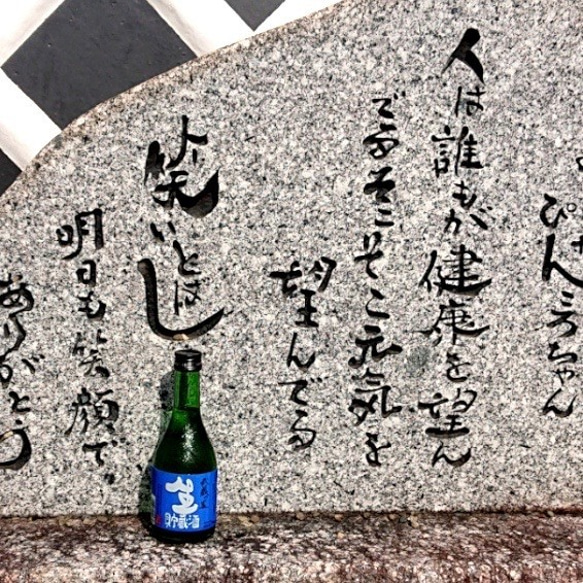 ぴんころちゃん
人は誰もが健康を望ん
でるそこそこ元気を
望んでる
笑いとばし
明日も笑顔で
ありがとう
生
貯蔵酒